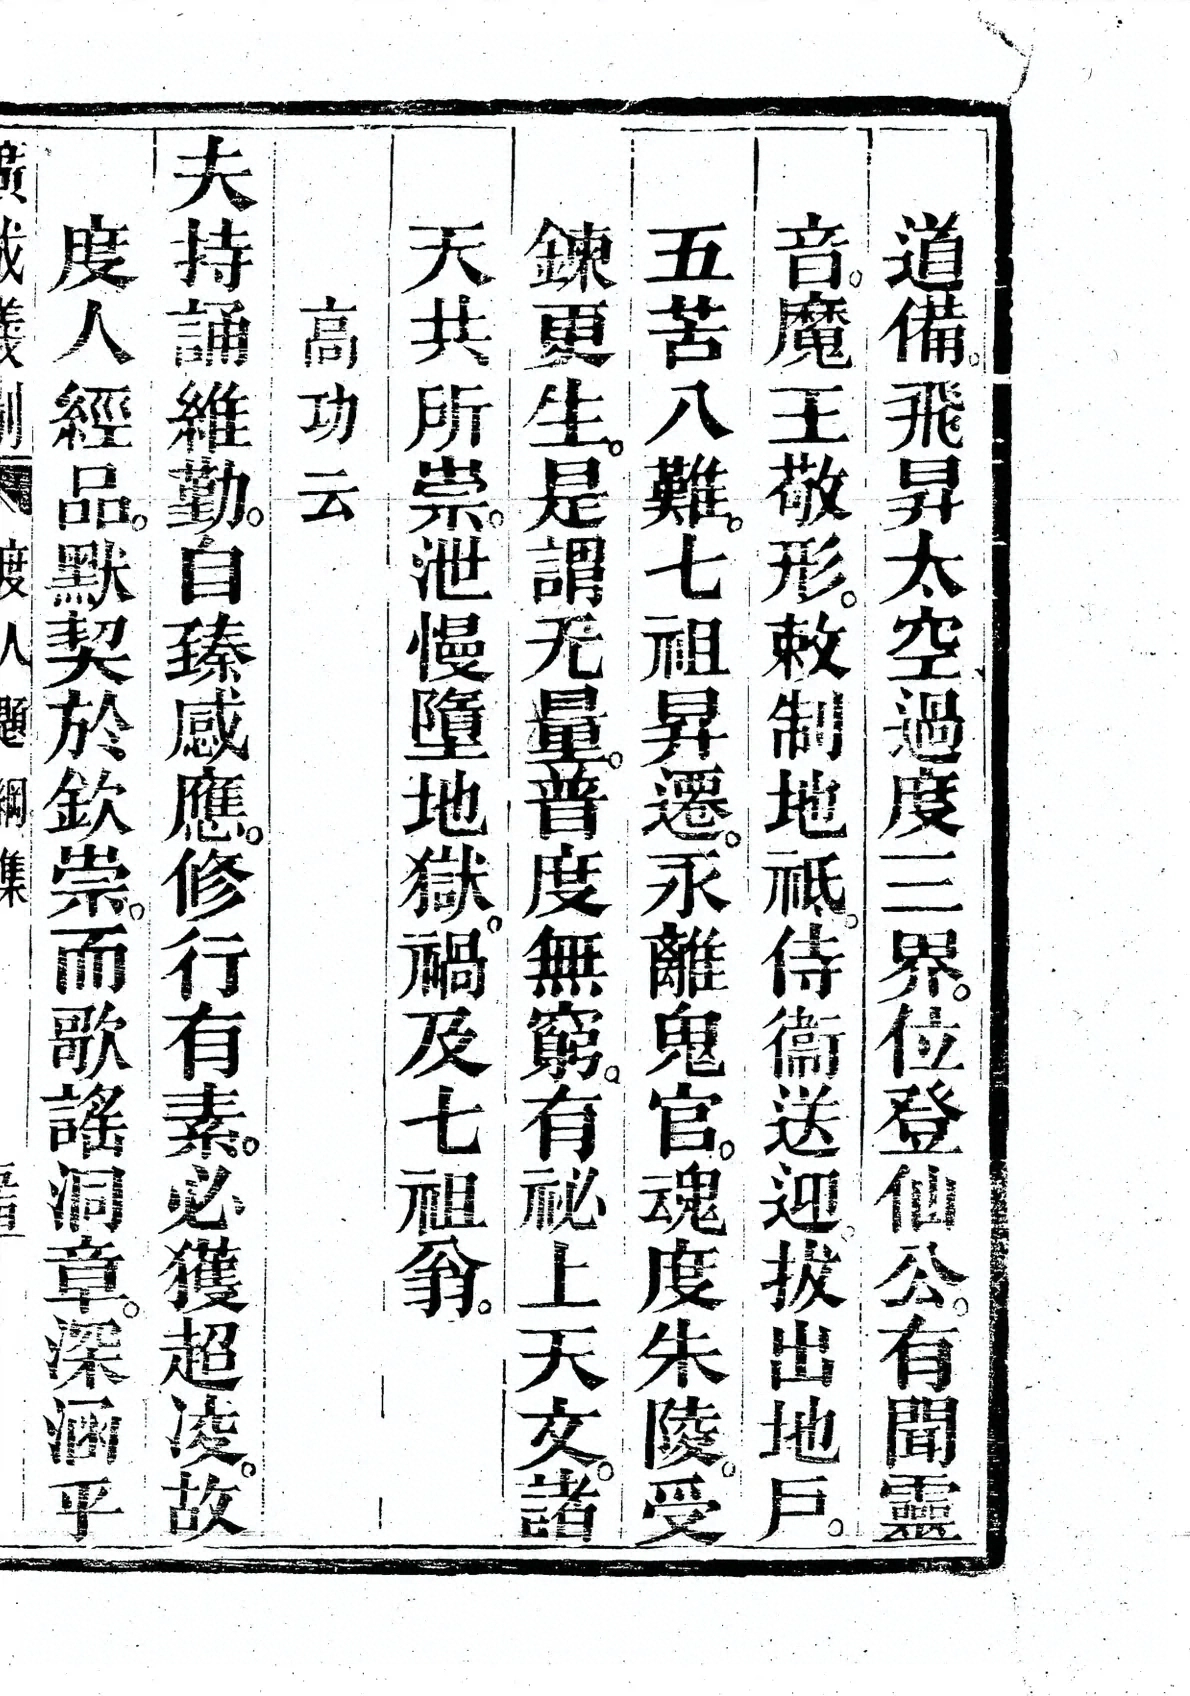 道備。飛昇太空過度三界。位登仙公。有聞靈
音。魔王敬形。敕制地祇。侍衞送迎。拔出地戶。
五苦八難。七祖昇遷。永離鬼官。魂度朱陵。受
鍊更生。是謂无量。普度無窮。有祕上天文。諸
天共所崇。泄慢墮地獄。禍及七祖翁。
高功云
夫持誦維勤。自臻感應。修行有素。必獲超凌。故
度人經品。默契於欽崇。而歌謠洞章。深涵乎
廣成義制 度人題綱集